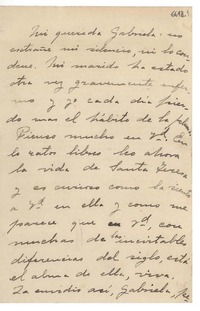 Mi querida Gabriela: no
extrañe mi silencio, ni lo con-
dene. Mi marido ha estado
otra vez gravemente enfer-
mo y yo cada día pier-
do mas el hábito de la pluma.
Pienso mucho en Vd. En
los ratos libres leo ahora
la vida de Santa Teresa
y es curioso como la siento
a Vd en ella y como me
parece que en Vd, con
muchas de las inevitables
diferencias del siglo, está
el alma de ella, viva.
La envidio así, Gabriela,